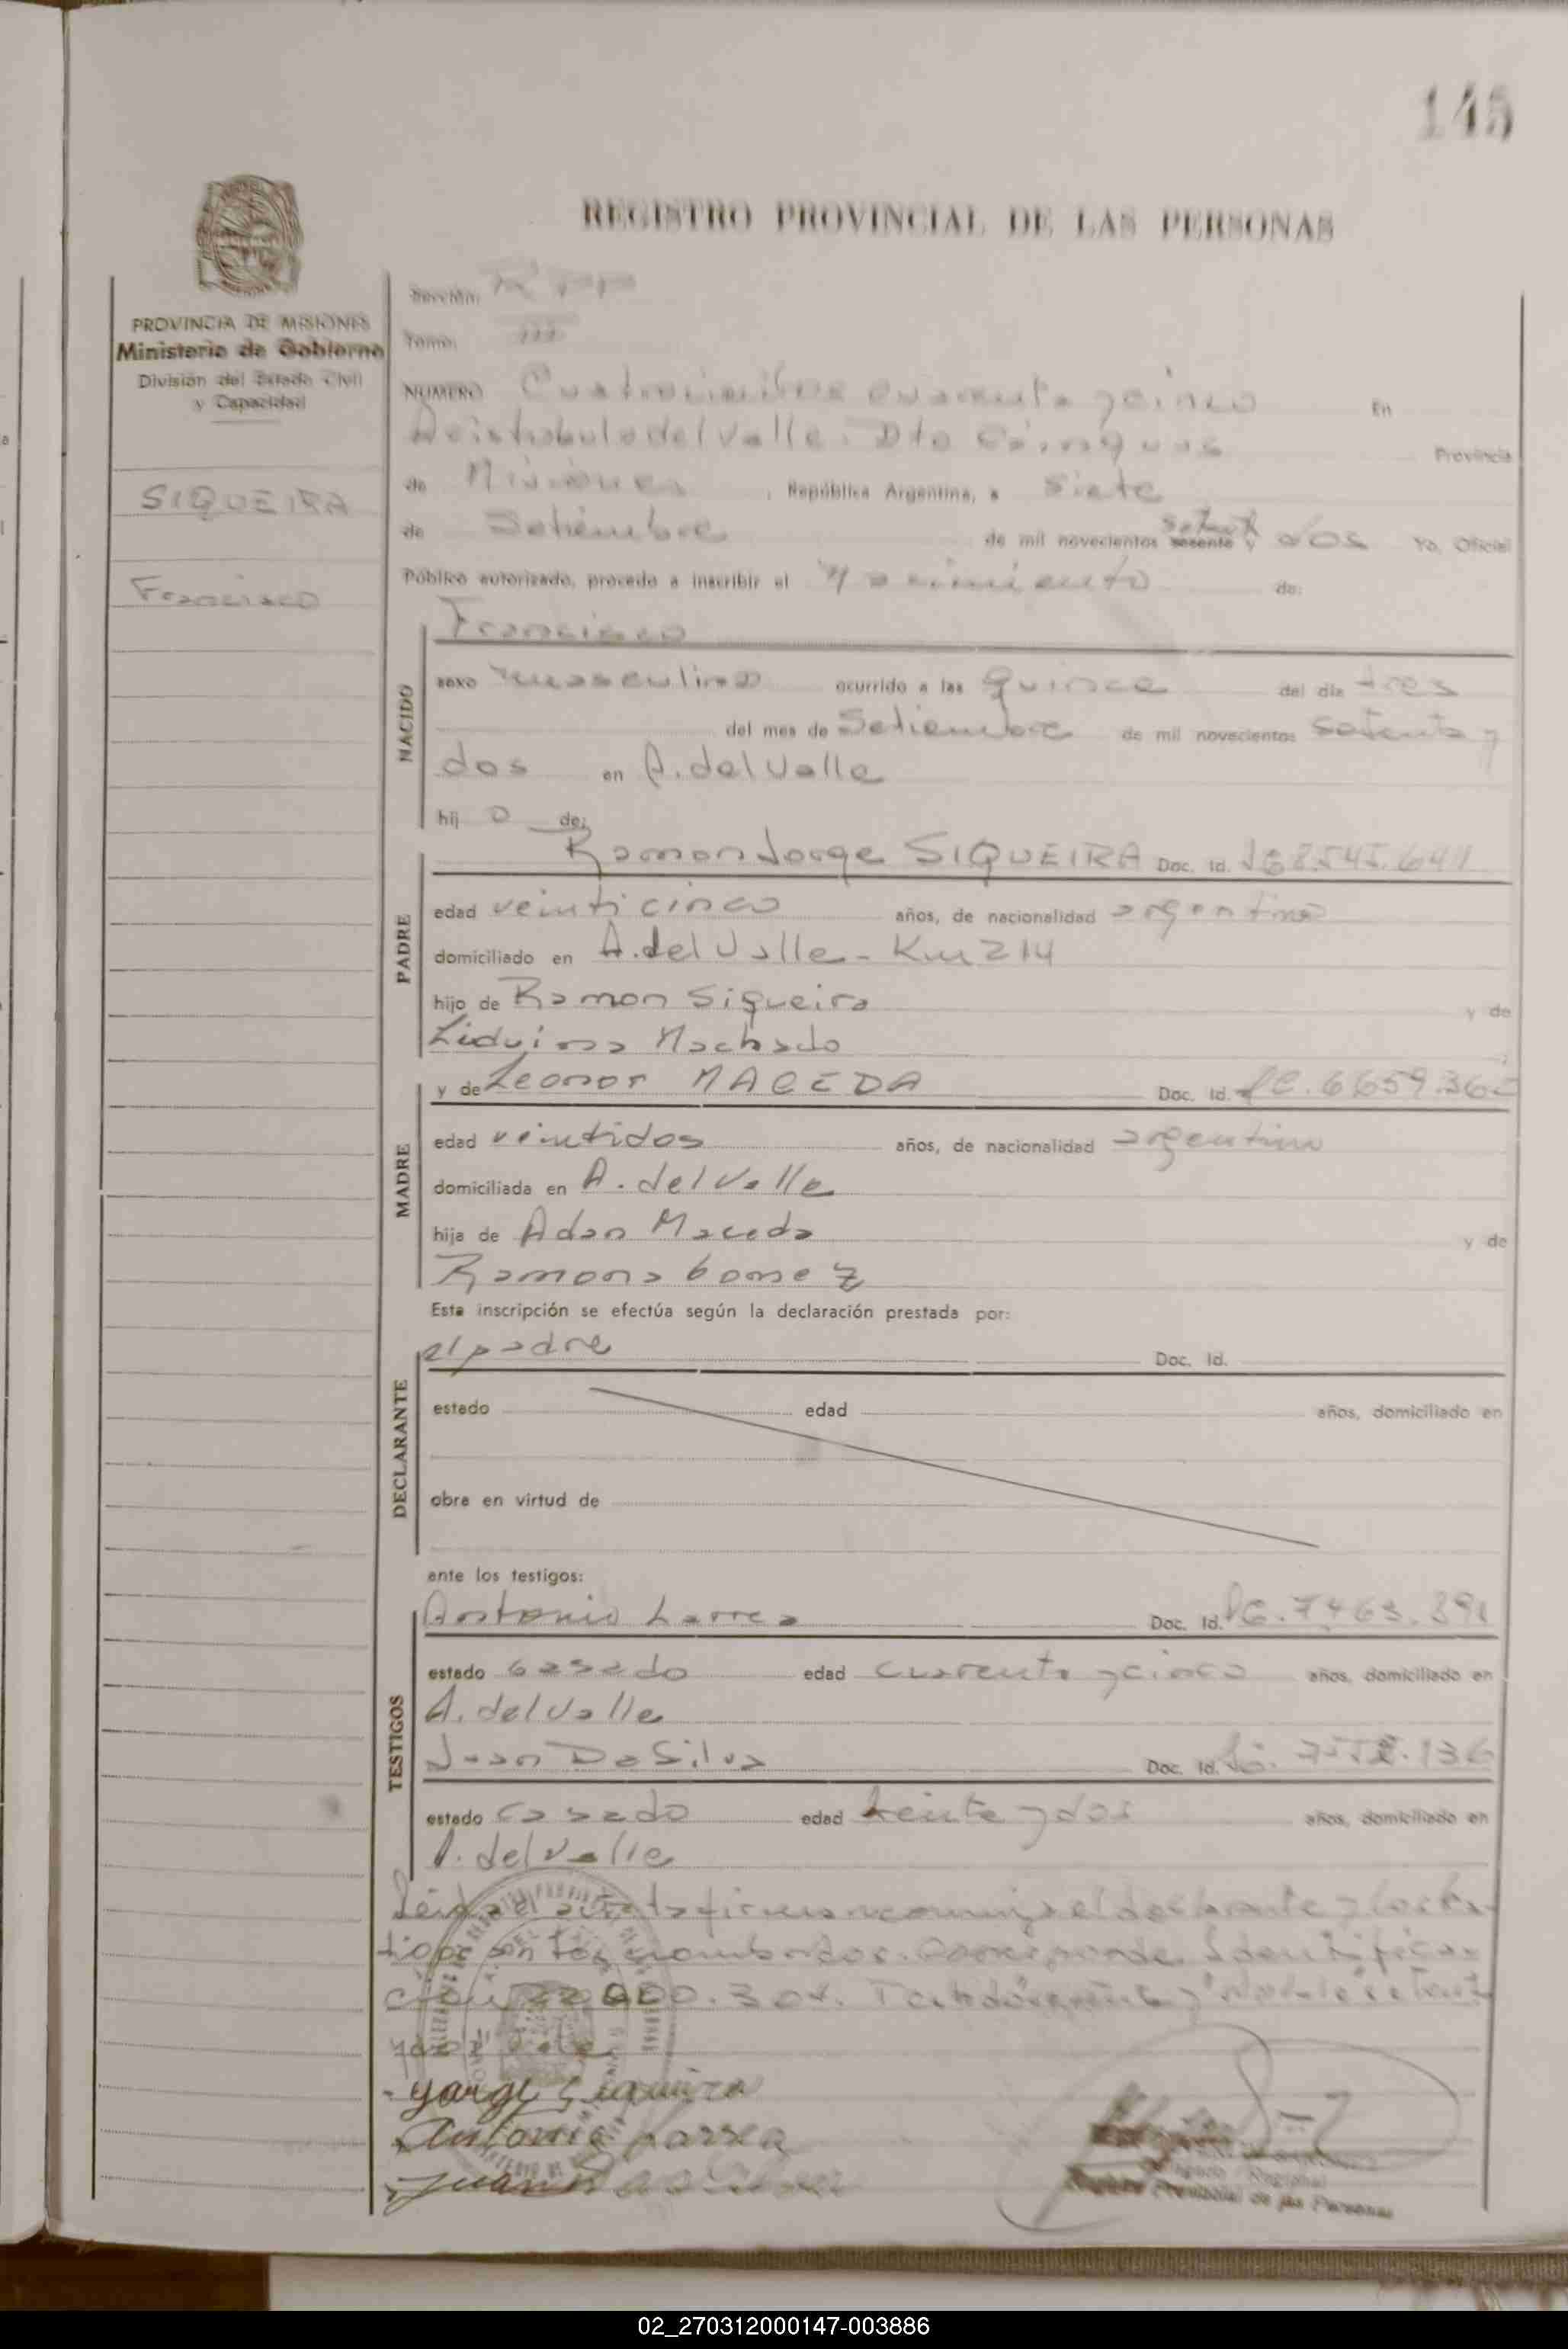 145
REGISTRO PROVINCIAL DE LAS PERSONAS
PROVINCIA DE MISIONES
Ministerio de Gobierno
División del Estado Civil
y Capacidad
SIQUEIRA
Francisco
Sección:
Tomo: III
NUMERO Cuatrocientos cuarenta y cinco En
Aristobulo del Valle. Dto Cainguas Provincia
de Misiones, República Argentina, a siete
de Setiembre de mil novecientos sesenta y setenta dos Yo, Oficial
Público autorizado, procedo a inscribir el Nacimiento de:
NACIDO
Francisco
sexo masculino ocurrido a las quince del día tres
del mes de Setiembre de mil novecientos setenta y
dos en A. del Valle
hij o de:
PADRE
Ramon Jorge SIQUEIRA Doc. Id.
edad veinticinco años, de nacionalidad argentina
domiciliado en A. del Valle - Km 214
hijo de Ramon Siqueira y de
Liduina Machado
MADRE
y de Leonor MACEDA Doc. Id.
edad veintidos años, de nacionalidad argentina
domiciliada en A. del Valle
hija de Adan Maceda y de
Ramona Gomez
Esta inscripción se efectúa según la declaración prestada por:
DECLARANTE
el padre Doc. Id.
estado edad años, domiciliado en
obra en virtud de
ante los testigos:
TESTIGOS
Antonio Larrea Doc. Id.
estado casado edad cuarenta y cinco años, domiciliado en
A. del Valle
Juan Da Silva Doc. Id.
estado casado edad treinta y dos años, domiciliado en
A. del Valle
Leida el acta la firman conmigo el declarante y los tes
tigos son los nombrados. Corresponde Identifica
cion
Jorge Siqueira
Antonio Larrea
Juan Da Silva
Registro Provincial de las Personas
02_270312000147-003886